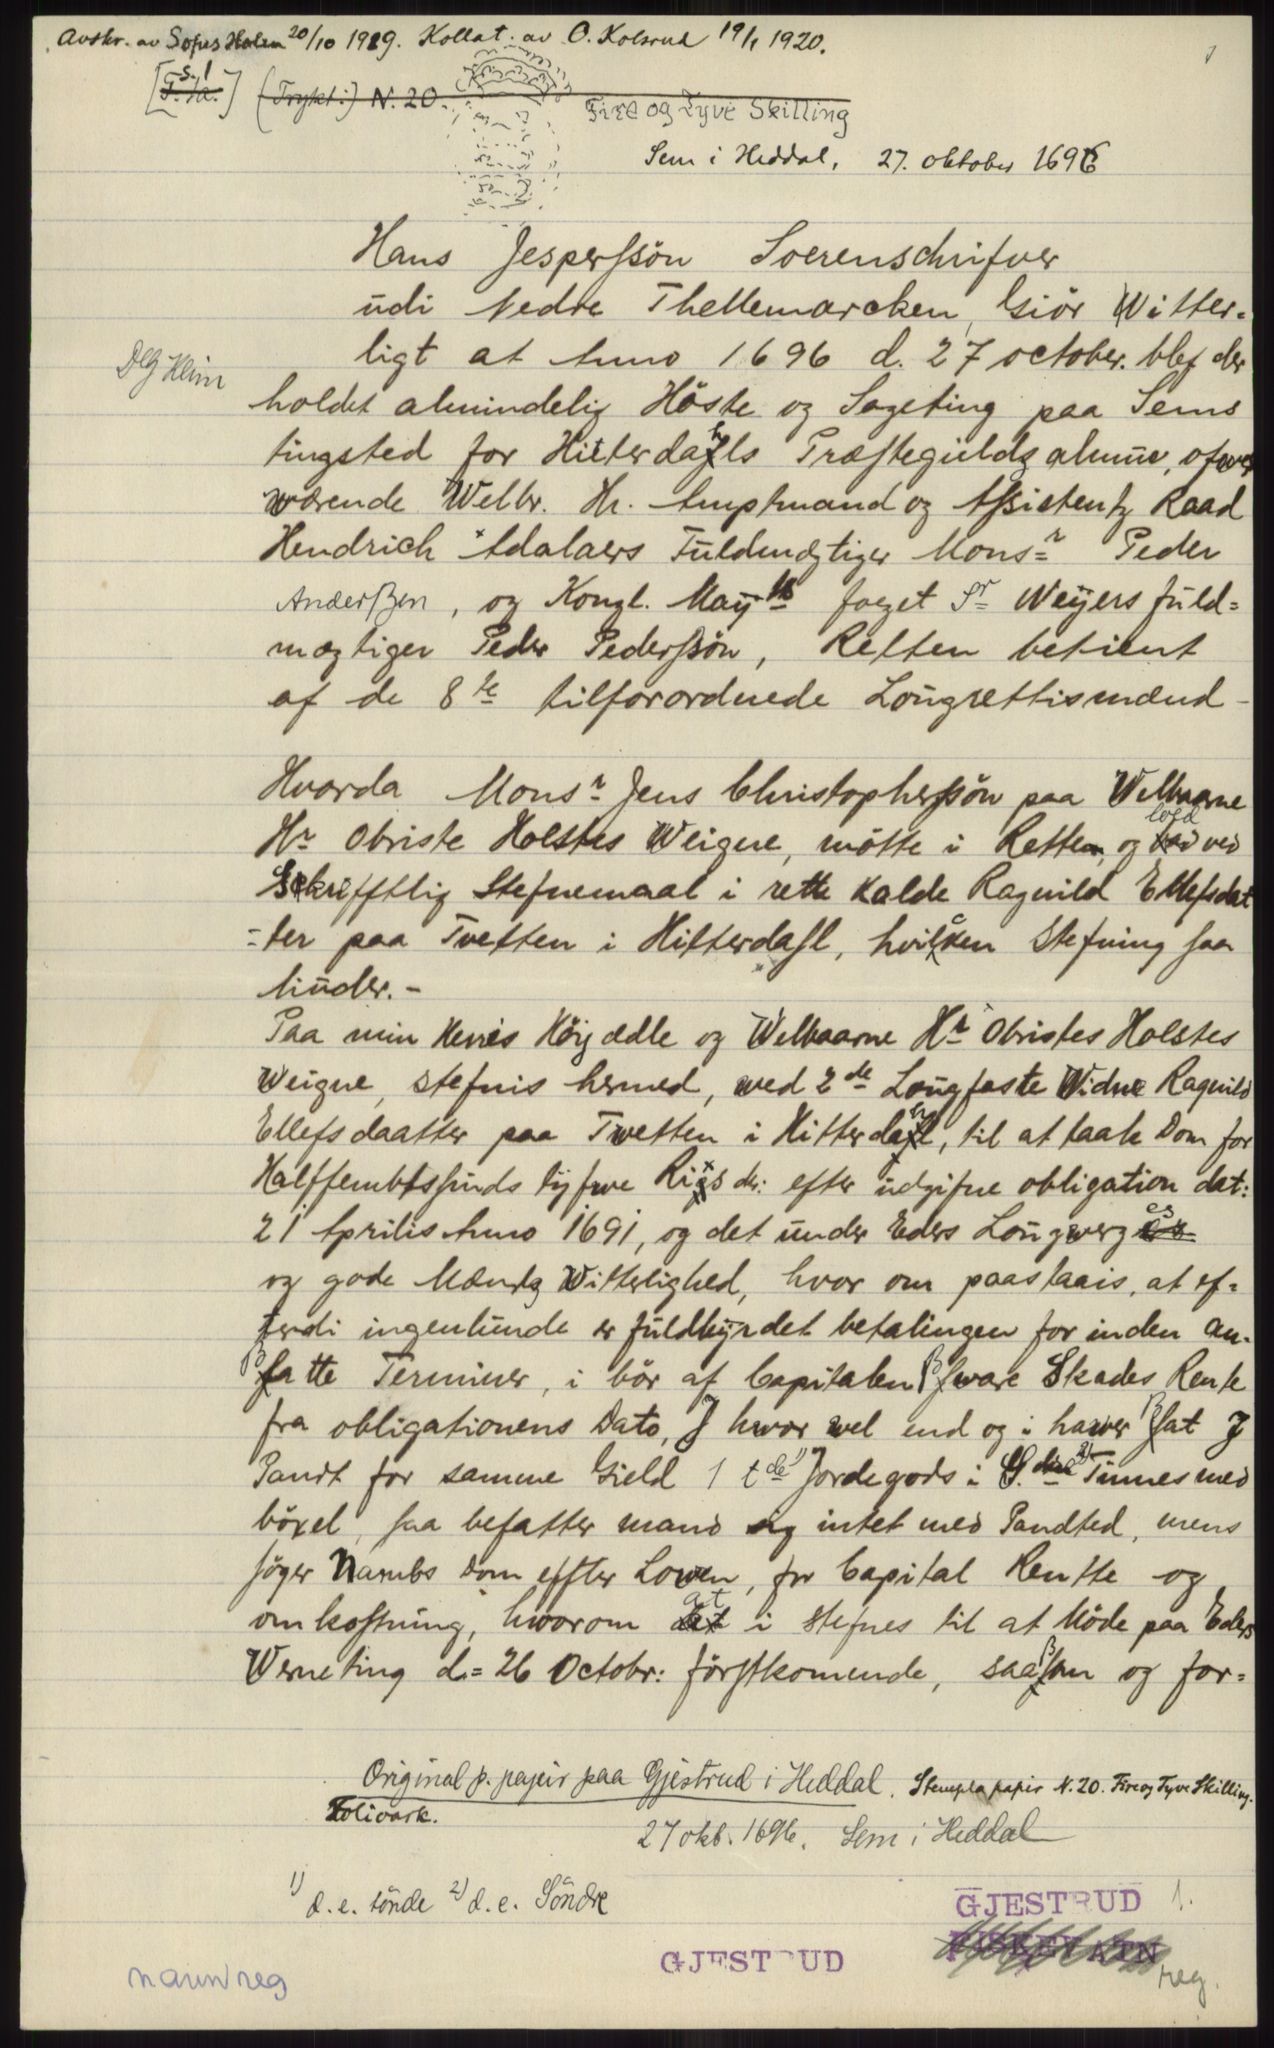 Avskr. av Sofus Holen 20/10 1919. Kollat. av O. Kolsrud 19/1 1920.
s. 1
(Trykt:) N. 20.
Fire og Tyve Skilling
Sem i Heddal, 27. oktober 1696
Hans Jesperssön Soerenschrifuer
udi Nedre Thellemarcken, Giör Witter-
ligt at Anno 1696 d. 27 october. blef der
holdet almindelig Höste og Sageting paa Sems
tingsted for Hitterdahls Præstegields almue, ofwer
wærende Welbr. Hr. Amptmand og Assistentz Raad
Hendrich Adalaers Fuldmegtiger Monsr Peder
Anderßen, og Kongl. Mayts foget Sr Weyers fuld=
mægtiger Peder Pederssön, Retten betient
af de 8te tilforordnede Lougrettismænd -
Hvorda Monsr Jens Christopherssön paa Welbaarne
Hr Obriste Holstes Weigne, mötte i Retten, og lod ved
Skrifftlig Stefnemaal i rette kalde Ragnild Ellefsdat
=ter paa Tvetten i Hitterdahl, hvilken Stefning saa
liuder. -
Paa min Herris Höy ædle og Welbaarne Hr Obristes Holstes
Weigne, stefnis hermed, wed 2de Lougfaste Widne Ragnild
Ellefsdaatter paa Twetten i Hitterdahl, til at taale Dom for
Halffembtesinds tyfwe Rixs dr: efter udgifne obligation dat:
21 Aprilis Anno 1691, og det under Eders Lougwerges
og gode Mændz Witterlighed, hvor om paastaais, at ef=
terdi ingenlunde er fuldbyrdet betalingen for inden an-
ßatte Terminer, i bör af Capitalen ßware Skades Rente
fra obligationens Dato, J hwor wel end og i hawer ßat J
Pandt for samme Gield 1 tde 1) Jordegods i S. dre 2) Tinnes med
böxel, saa befatter mand sig intet med Pandted, mens
söger Nambs Dom effter Lowen, for Capital Rentte og
omkostning, hworom at i stefnes til at Möde paa Eders
Werneting d= 26 Octobr: förstkomende, saaßom og for=
DCG Heim
Original p. papir paa Gjestrud i Heddal. Stempla papir N. 20. Fire og Tyve Skilling.
27 okt. 1696. Sem i Heddal
1) d.e. tönde 2) d.e. Söndre
GJESTRUD 1.
GJESTRUD
reg.
navnreg